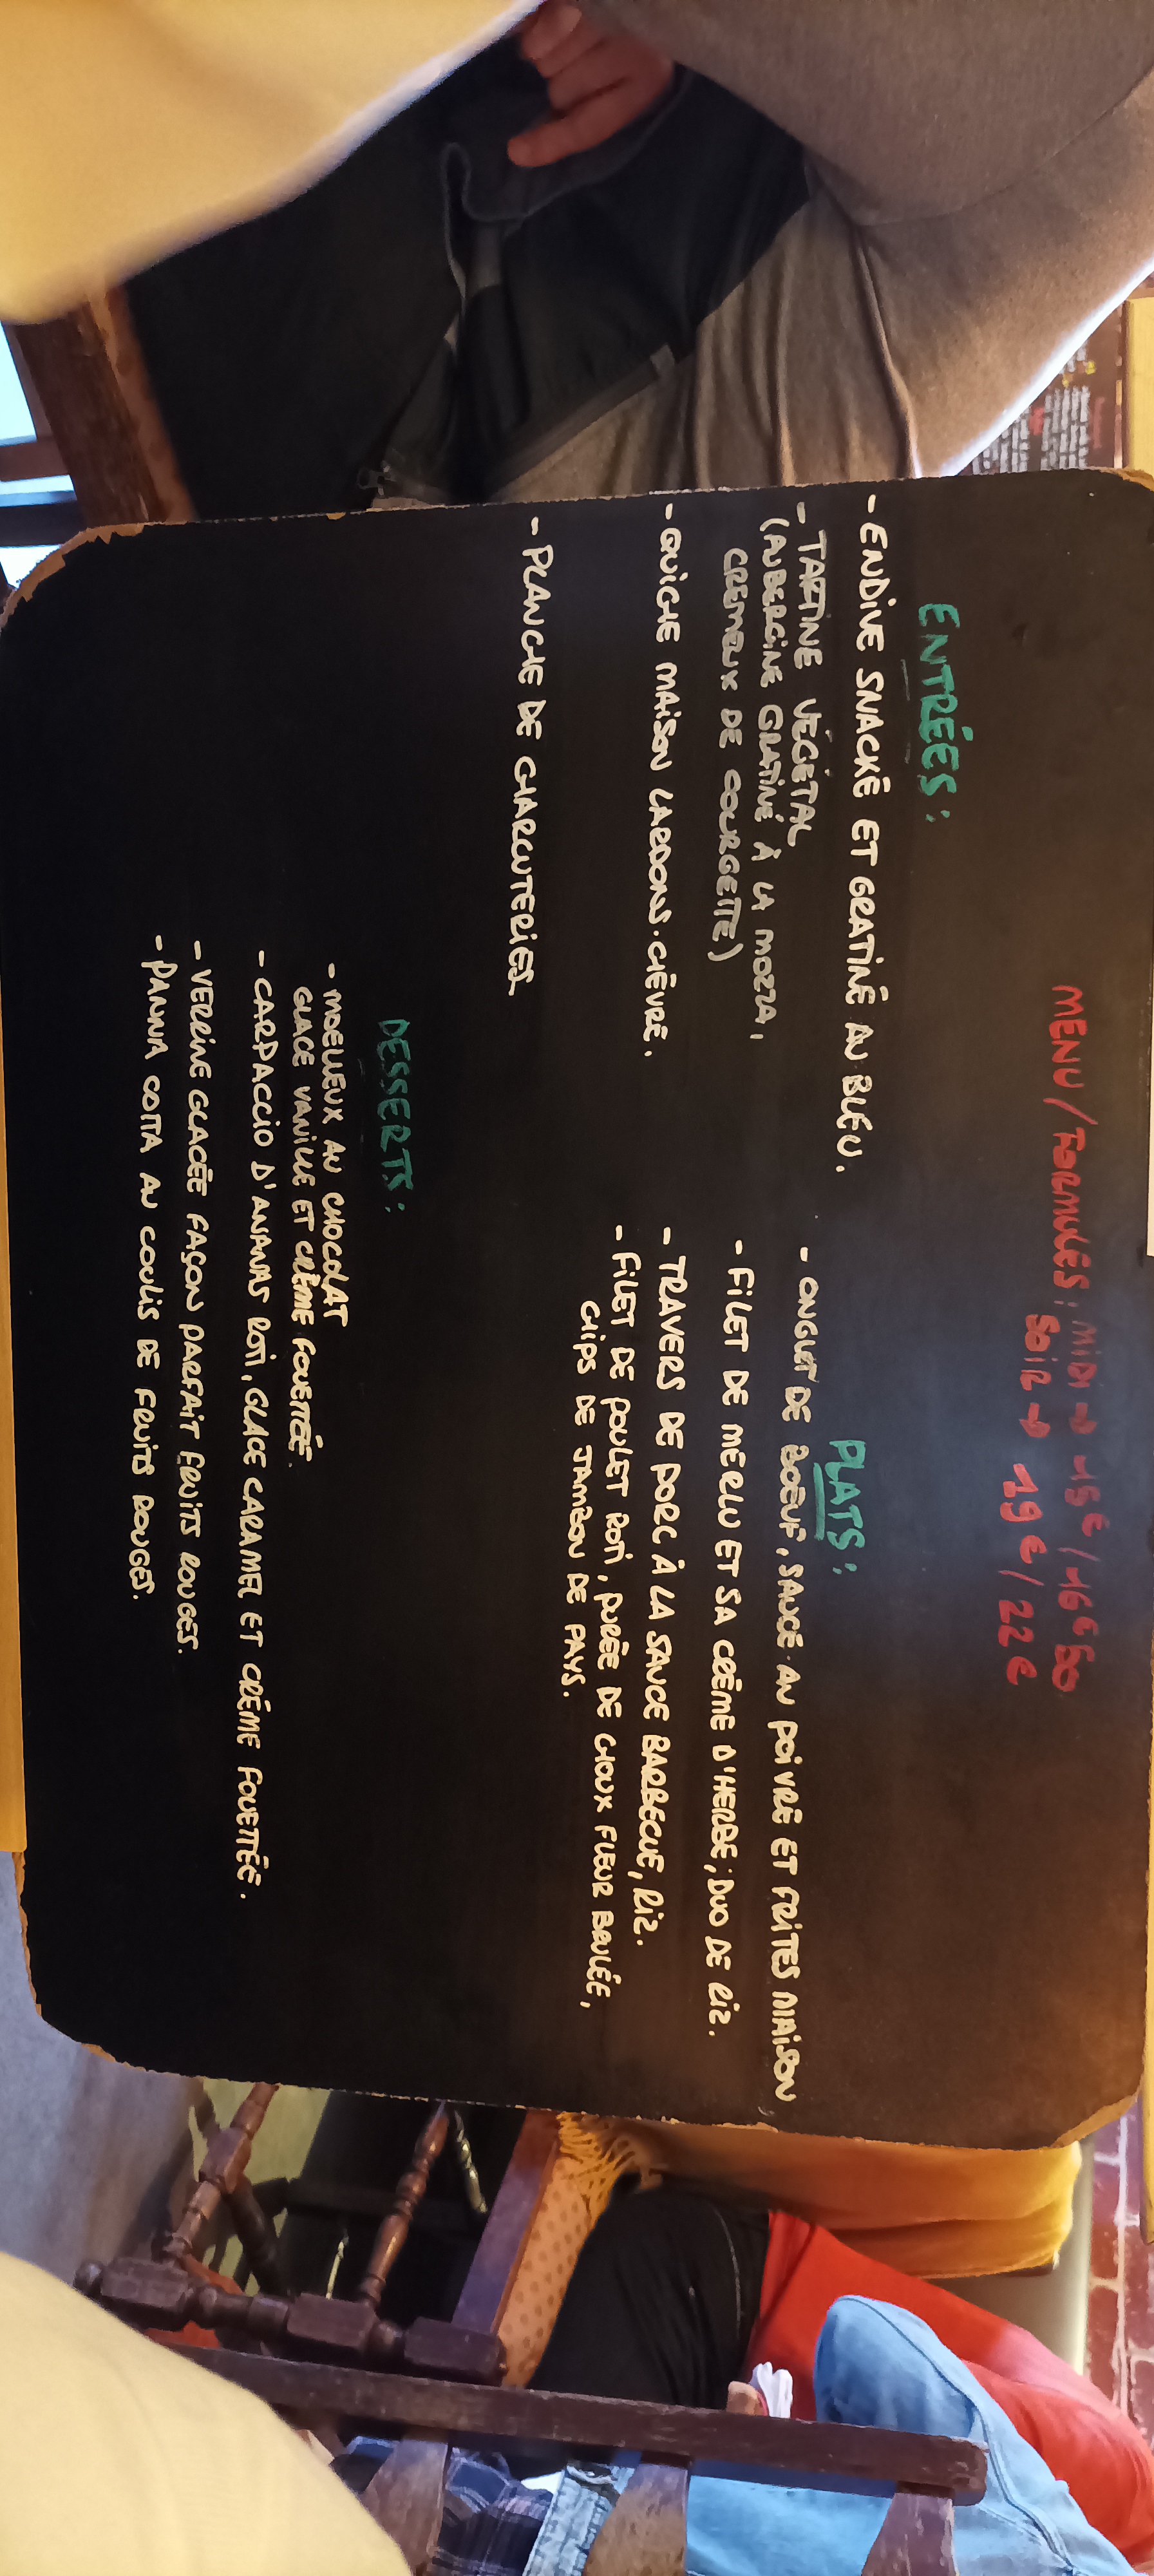 MENU / FORMULES : MIDI → 15€ / 16€50
SOIR → 19€ / 22€
ENTRÉES :
- ENDIVE SNACKÉ ET GRATINÉ AU BLEU.
- TARTINE VÉGÉTAL
(AUBERGINE GRATINÉ À LA MOZZA,
CREMEUX DE COURGETTE)
- QUICHE MAISON LARDONS. CHÈVRE.
- PLANCHE DE CHARCUTERIES
PLATS :
- ONGLET DE BOEUF, SAUCE AU POIVRE ET FRITES MAISON
- FILET DE MERLU ET SA CRÈME D'HERBE, DUO DE RIZ.
- TRAVERS DE PORC À LA SAUCE BARBECUE, RIZ.
- FILET DE POULET ROTI, PURÉE DE CHOUX FLEUR BRULÉE,
CHIPS DE JAMBON DE PAYS.
DESSERTS :
- MOELLEUX AU CHOCOLAT
GLACE VANILLE ET CRÈME FOUETTÉE.
- CARPACCIO D'ANANAS ROTI, GLACE CARAMEL ET CRÈME FOUETTÉE.
- VERRINE GLACÉE FAÇON PARFAIT FRUITS ROUGES.
- PANNA COTTA AU COULIS DE FRUITS ROUGES.